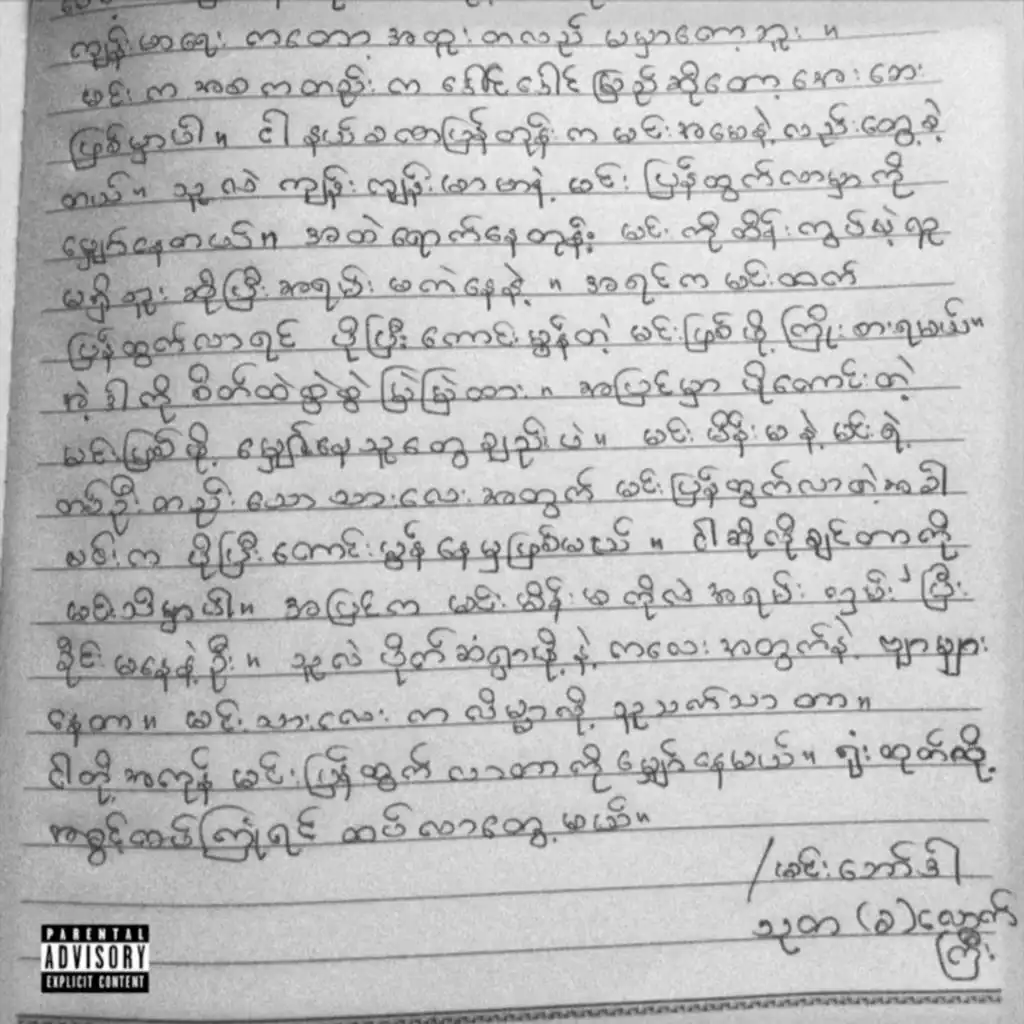 ကျန်းမာရေး ကတော့ အထူး တလည် မမှာတော့ဘူး ။
မင်း က အစ ကတည်း က ဒေါင်ဒေါင် မြည်ဆိုတော့ အေးဆေး
ဖြစ်မှာပါ ။ ငါ နယ် ခဏပြန်တုန်း က မင်းအမေနဲ့ လည်းတွေ့ခဲ့
တယ် ။ သူ လဲ ကျန်း ကျန်းမာမာနဲ့ မင်း ပြန်ထွက်လာမှာ ကို
မျှော်နေတယ် ။ အထဲ ရောက်နေတုန်း မင်း ကို ထိန်းကွပ်မဲ့ သူ
မရှိဘူး ဆိုပြီး အရမ်း မကဲနေနဲ့ ။ အရင်က မင်းထက်
ပြန်ထွက်လာရင် ပိုပြီး ကောင်းမွန်တဲ့ မင်းဖြစ်ဖို့ ကြိုးစားရမယ် ။
အဲ့ ဒါကို စိတ်ထဲ စွဲစွဲ မြဲမြဲထား ။ အပြင်မှာ ပိုကောင်းတဲ့
မင်းဖြစ်ဖို့ မျှော်နေသူတွေ ချည်းပဲ ။ မင်း မိန်းမ နဲ့ မင်းရဲ့
တစ်ဦး တည်း သော သားလေး အတွက် မင်းပြန်ထွက်လာတဲ့အခါ
မင်းက ပိုပြီး ကောင်းမွန် နေမှဖြစ်မယ် ။ ငါဆိုလိုချင်တာကို
မင်းသိမှာပါ ။ အပြင်က မင်းမိန်းမ ကိုလဲ အရမ်း ကြီး
ခိုင်းမနေနဲ့ဦး ။ သူလဲ ပိုက်ဆံရှာဖို့ နဲ့ ကလေး အတွက်နဲ့ ဗျာများ
နေတာ ။ မင်း သားလေး က လိမ္မာလို့ သူသက်သာ တာ ။
ငါတို့ အကုန် မင်း ပြန်ထွက် လာတာကို မျှော်နေမယ် ။ ရုံးထုတ်လို့
အခွင့်ထပ်ကြုံရင် ထပ်လာတွေ့မယ် ။
/ မင်းဘော်ဒါ
သုတ (ခ) လျှောက်
ကြီး
PARENTAL
ADVISORY
EXPLICIT CONTENT